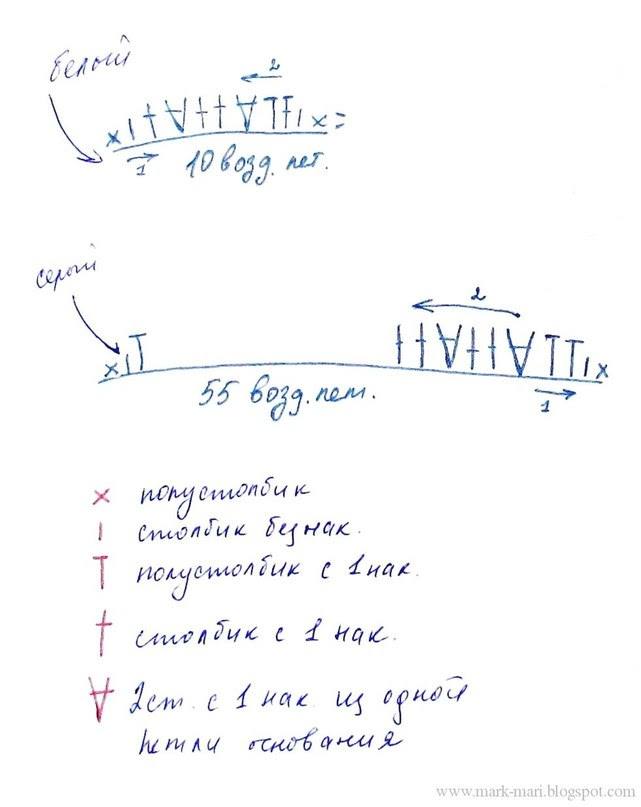 белый
2
1
10 возд. пет.
серый
2
55 возд. пет.
1
х полустолбик
столбик без нак.
полустолбик с 1 нак.
столбик с 1 нак.
2 ст. с 1 нак. из одной
петли основания
www.mark-mari.blogspot.com